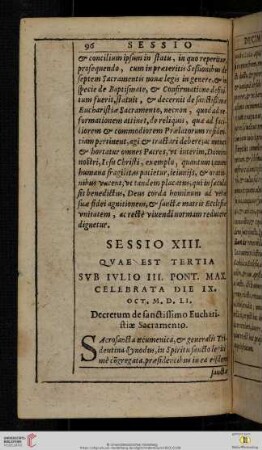 96 SESSIO
& concilium ipsum in statu, in quo reperitur
prosequendo, cum in præteritis Sessionibus de
septem Sacramentis nouæ legis in genere, & in
specie de Baptismate, & Confirmatione defini-
tum fuerit, statuit, & decernit de sanctissimo
Eucharistiæ Sacramento, necnon, quod ad re-
formationem attinet, de reliquis, quæ ad faci-
liorem & commodiorem Prælatorum residen-
tiam pertinent, agi & tractari debere; ac monet
& hortatur omnes Patres, vt interim, Domini
nostri, Iesu Christi, exemplo, quantum tamen
humana fragilitas patietur, ieiuniis, & oratio-
nibus vacent, vt tandem placatus, qui in sæcula
sit benedictus, Deus corda hominum ad veræ
suæ fidei agnitionem, & sanctæ matris Ecclesiæ
vnitatem, ac rectè viuendi normam reducere
dignetur.
SESSIO XIII.
QVAE EST TERTIA
SVB IVLIO III. PONT. MAX.
CELEBRATA DIE IX.
OCT. M. D. LI.
Decretum de sanctissimo Euchari-
stiæ Sacramento.
SAcrosancta œcumenica, & generalis Tri-
dentina Synodus, in Spiritu sancto legiti-
mè cōgregata, præsidentibus in ea eisdem
sanctæ